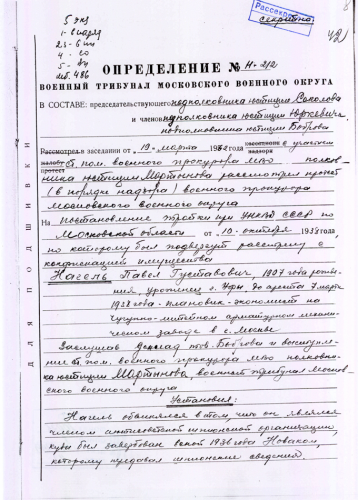 Рассекречено
секретно
5 экз
42
ОПРЕДЕЛЕНИЕ № Н-212
ВОЕННЫЙ ТРИБУНАЛ МОСКОВСКОГО ВОЕННОГО ОКРУГА
В СОСТАВЕ: председательствующего подполковника юстиции Соколова
и членов подполковника юстиции Юркевича
подполковника юстиции Боброва
Рассмотрел в заседании от "19" марта с участием
ст. пом. военного прокурора МВО полков-
ника юстиции Мартынова рассмотрел протест
(в порядке надзора) военного прокурора
Московского военного округа
На постановление тройки при УНКВД СССР по
Московской области от "10" октября 1938 года
по которому был подвергнут расстрелу с
конфискацией имущества
Нагель Павел Густавович, 1907 года рожде-
ния, уроженец г. Уфы, до ареста 7 марта
1938 года - плановик-экономист на
чугунно-литейном арматурном механи-
ческом заводе в г. Москве
Заслушав доклад тов. Боброва и выступле-
ние ст. пом. военного прокурора МВО полковни-
ка юстиции Мартынова, военный трибунал Москов-
ского военного округа
Установил:
Нагель обвинялся в том, что он являлся
членом антисоветской шпионской организации,
куда был завербован в 1936 года Новаком,
которому предавал шпионские сведения
ДЛЯ ПОДШИВКИ